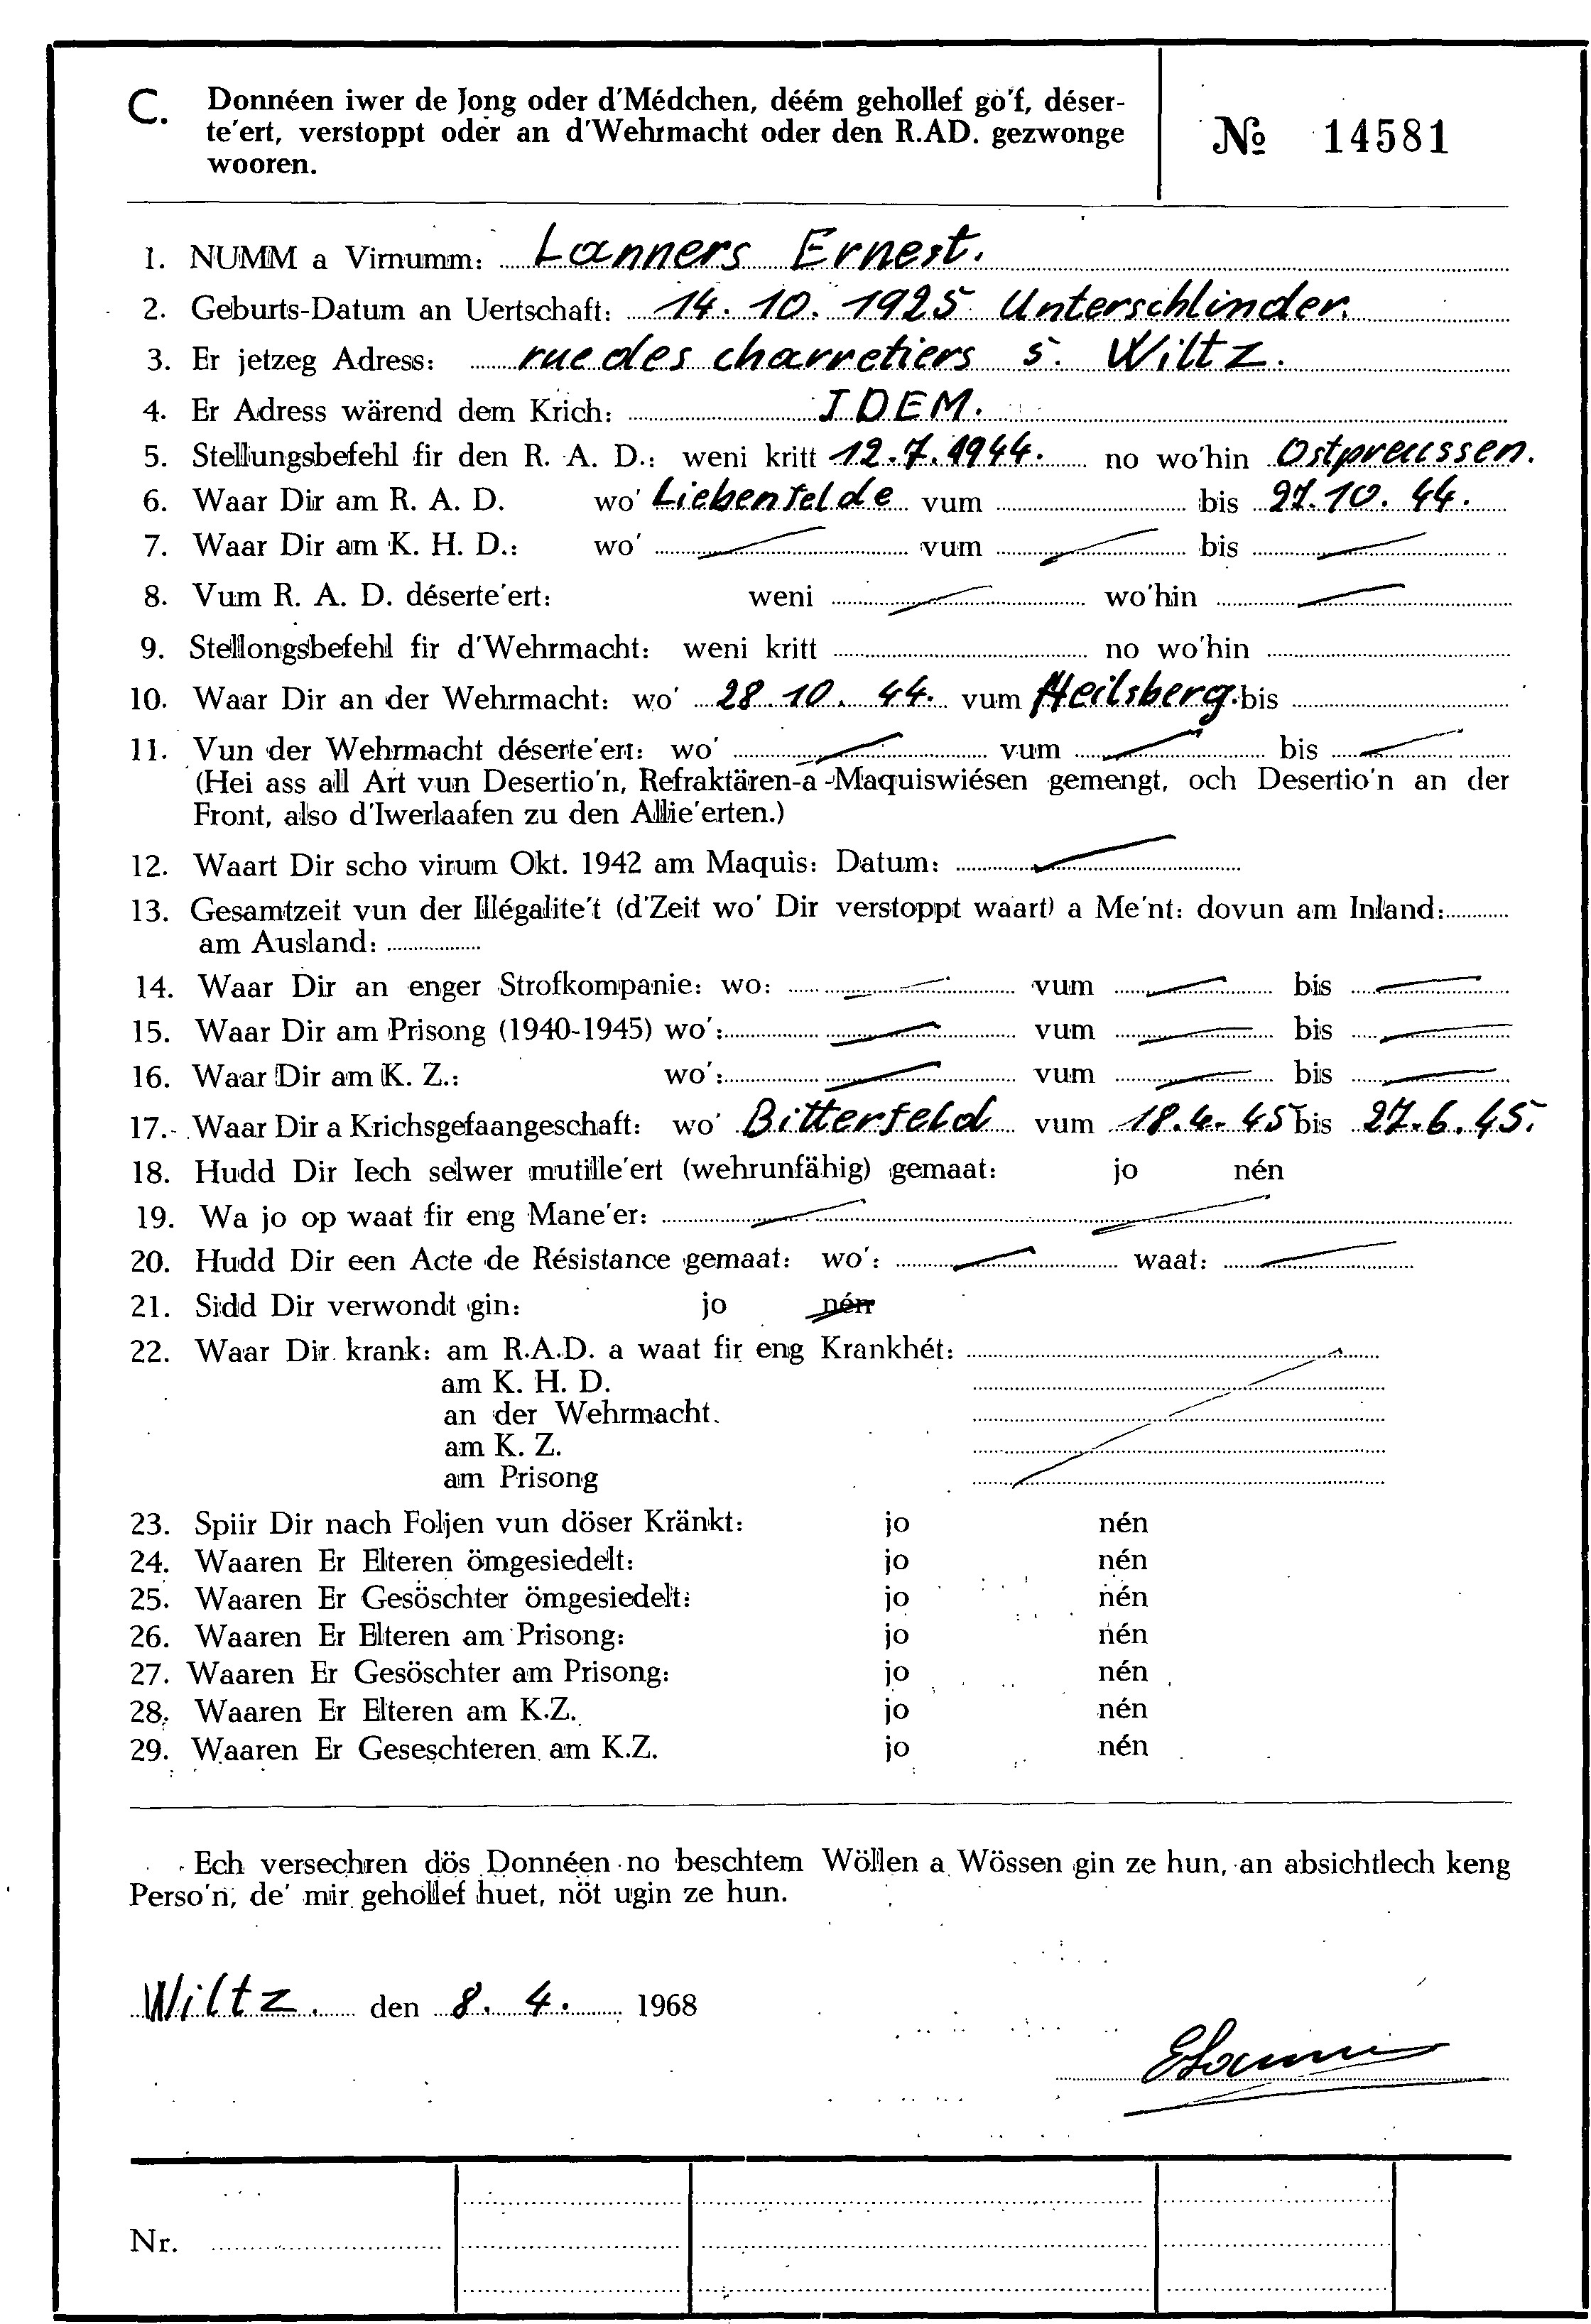 C. Donnéen iwer de Jong oder d'Médchen, déém gehollef go'f, déser-
te'ert, verstoppt oder an d'Wehrmacht oder den R.AD. gezwonge
wooren.
№ 14581
1. NUMM a Virnumm: Lanners Ernest.
2. Geburts-Datum an Uertschaft: 14. 10. 1925 Unterschlinder.
3. Er jetzeg Adress: rue des charretiers 5. Wiltz.
4. Er Adress wärend dem Krich: IDEM.
5. Stellungsbefehl fir den R. A. D.: weni kritt 12.7.1944. no wo'hin Ostpreussen.
6. Waar Dir am R. A. D. wo' Liebenfelde vum bis 27.10. 44.
7. Waar Dir am K. H. D.: wo' vum bis
8. Vum R. A. D. déserte'ert: weni wo'hin
9. Stellongsbefehl fir d'Wehrmacht: weni kritt no wo'hin
10. Waar Dir an der Wehrmacht: wo' 28.10. 44. vum Heilsberg. bis
11. Vun der Wehrmacht déserte'ert: wo' vum bis
(Hei ass all Art vun Desertio'n, Refraktären-a-Maquiswiésen gemengt, och Desertio'n an der
Front, also d'Iwerlaafen zu den Allie'erten.)
12. Waart Dir scho virum Okt. 1942 am Maquis: Datum:
13. Gesamtzeit vun der Illégalite't (d'Zeit wo' Dir verstoppt waart) a Me'nt: dovun am Inland:
am Ausland:
14. Waar Dir an enger Strofkompanie: wo: vum bis
15. Waar Dir am Prisong (1940-1945) wo': vum bis
16. Waar Dir am K. Z.: wo': vum bis
17. Waar Dir a Krichsgefaangeschaft: wo' Bitterfeld vum 18.4. 45 bis 27.6.45.
18. Hudd Dir Iech selwer mutille'ert (wehrunfähig) gemaat: jo nén
19. Wa jo op waat fir eng Mane'er:
20. Hudd Dir een Acte de Résistance gemaat: wo': waat:
21. Sidd Dir verwondt gin: jo nén
22. Waar Dir krank: am R.A.D. a waat fir eng Krankhét:
am K. H. D.
an der Wehrmacht.
am K. Z.
am Prisong
23. Spiir Dir nach Foljen vun döser Kränkt: jo nén
24. Waaren Er Elteren ömgesiedelt: jo nén
25. Waaren Er Gesöschter ömgesiedelt: jo nén
26. Waaren Er Elteren am Prisong: jo nén
27. Waaren Er Gesöschter am Prisong: jo nén
28. Waaren Er Elteren am K.Z. jo nén
29. Waaren Er Geseschteren am K.Z. jo nén
Ech versechren dös Donnéen no beschtem Wöllen a Wössen gin ze hun, an absichtlech keng
Perso'n, de' mir gehollef huet, nöt ugin ze hun.
Wiltz. den 8. 4. 1968
Nr.